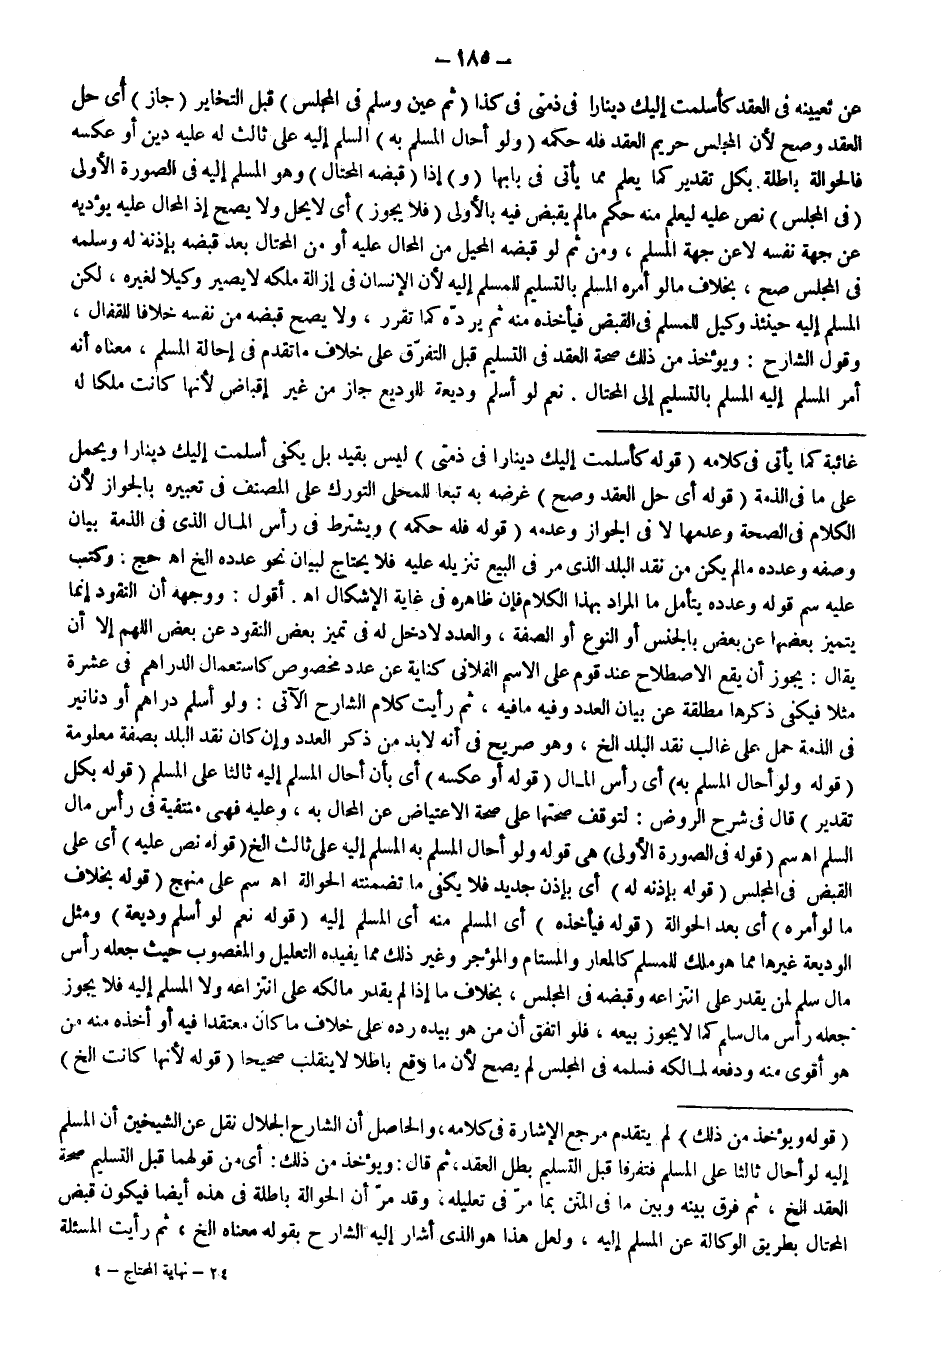 - ١٨٥ -
عن تعيينه فى العقد كأسلمت إليك دينارا فى ذمتى فى كذا ( ثم عين وسلم فى المجلس ) قبل التخاير ( جاز ) أى حل
العقد وصح لأن المجلس حريم العقد فله حكمه ( ولو أحال المسلم به ) المسلم إليه على ثالث له عليه دين أو عكسه
فالحوالة باطلة بكل تقدير كما يعلم مما يأتى فى بابها ( و ) إذا ( قبضه المحتال ) وهو المسلم إليه فى الصورة الأولى
( فى المجلس ) نص عليه ليعلم منه حكم مالم يقبض فيه بالأولى ( فلا يجوز ) أى لايحل ولا يصح إذ المحال عليه يؤديه
عن جهة نفسه لاعن جهة المسلم ، ومن ثم لو قبضه المحيل من المحال عليه أو من المحتال بعد قبضه بإذنه له وسلمه
فى المجلس صح ، بخلاف مالو أمره المسلم بالتسليم للمسلم إليه لأن الإنسان فى إزالة ملكه لايصير وكيلا لغيره ، لكن
المسلم إليه حينئذ وكيل للمسلم فى القبض فيأخذه منه ثم يردّه كما تقرر ، ولا يصح قبضه من نفسه خلافا للقفال ،
وقول الشارح : ويؤخذ من ذلك صحة العقد فى التسليم قبل التفرّق على خلاف ماتقدم فى إحالة المسلم ، معناه أنه
أمر المسلم إليه المسلم بالتسليم إلى المحتال . نعم لو أسلم وديعة للوديع جاز من غير إقباض لأنها كانت ملكا له
غائبة كما يأتى فى كلامه ( قوله كأسلمت إليك دينارا فى ذمتى ) ليس بقيد بل يكفى أسلمت إليك دينارا ويحمل
على ما فى الذمة ( قوله أى حل العقد وصح ) غرضه به تبعا للمحلى التورك على المصنف فى تعبيره بالجواز لأن
الكلام فى الصحة وعدمها لا فى الجواز وعدمه ( قوله فله حكمه ) ويشترط فى رأس المال الذى فى الذمة بيان
وصفه وعدده مالم يكن من نقد البلد الذى مر فى البيع تنزيله عليه فلا يحتاج لبيان نحو عدده الخ اه حج : وكتب
عليه سم قوله وعدده يتأمل ما المراد بهذا الكلام فإن ظاهره فى غاية الإشكال اه . أقول : ووجهه أن النقود إنما
يتميز بعضها عن بعض بالجنس أو النوع أو الصفة ، والعدد لادخل له فى تميز بعض النقود عن بعض اللهم إلا أن
يقال : يجوز أن يقع الاصطلاح عند قوم على الاسم الفلانى كناية عن عدد مخصوص كاستعمال الدراهم فى عشرة
مثلا فيكفى ذكرها مطلقة عن بيان العدد وفيه مافيه ، ثم رأيت كلام الشارح الآتى : ولو أسلم دراهم أو دنانير
فى الذمة حمل على غالب نقد البلد الخ ، وهو صريح فى أنه لابد من ذكر العدد وإن كان نقد البلد بصفة معلومة
( قوله ولو أحال المسلم به ) أى رأس المال ( قوله أو عكسه ) أى بأن أحال المسلم إليه ثالثا على المسلم ( قوله بكل
تقدير ) قال فى شرح الروض : لتوقف صحتها على صحة الاعتياض عن المحال به ، وعليه فهى منتفية فى رأس مال
السلم اه سم ( قوله فى الصورة الأولى) هى قوله ولو أحال المسلم به المسلم إليه على ثالث الخ( قوله نص عليه ) أى على
القبض فى المجلس ( قوله بإذنه له ) أى بإذن جديد فلا يكفى ما تضمنته الحوالة اه سم على منهج ( قوله بخلاف
ما لو أمره ) أى بعد الحوالة ( قوله فيأخذه ) أى المسلم منه أى المسلم إليه ( قوله نعم لو أسلم وديعة ) ومثل
الوديعة غيرها مما هو ملك للمسلم كالمعار والمستام والمؤجر وغير ذلك مما يفيده التعليل والمغصوب حيث جعله رأس
مال سلم لمن يقدر على انتزاعه وقبضه فى المجلس ، بخلاف ما إذا لم يقدر مالكه على انتزاعه ولا المسلم إليه فلا يجوز
جعله رأس مال سلم كما لايجوز بيعه ، فلو اتفق أن من هو بيده رده على خلاف ماكان معتقدا فيه أو أخذه منه من
هو أقوى منه ودفعه لمالكه فسلمه فى المجلس لم يصح لأن ما وقع باطلا لاينقلب صحيحا ( قوله لأنها كانت الخ )
( قوله ويؤخذ من ذلك ) لم يتقدم مرجع الإشارة فى كلامه، والحاصل أن الشارح الجلال نقل عن الشيخين أن المسلم
إليه لو أحال ثالثا على المسلم فتفرقا قبل التسليم بطل العقد، ثم قال : ويؤخذ من ذلك: أى من قولهما قبل التسليم صحة
العقد الخ ، ثم فرق بينه وبين ما فى المتن بما مرّ فى تعليله، وقد مرّ أن الحوالة باطلة فى هذه أيضا فيكون قبض
المحتال بطريق الوكالة عن المسلم إليه ، ولعل هذا هو الذى أشار إليه الشارح بقوله معناه الخ ، ثم رأيت المسئلة
٢٤ - نهاية المحتاج - ٤